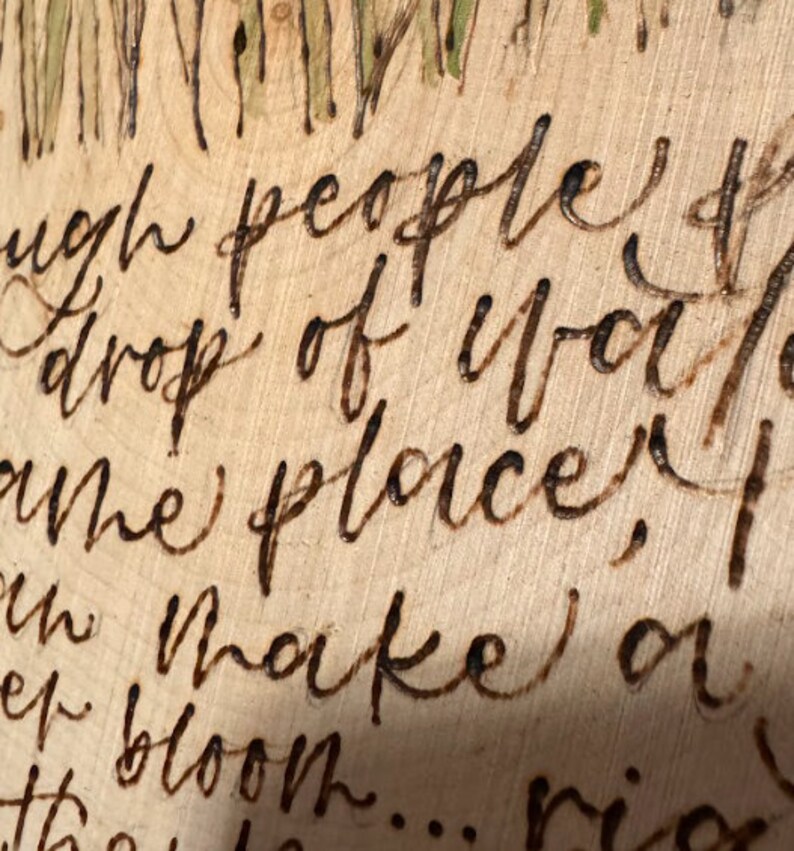 ugh people p
drop of wate
ame place, I
an make a
er bloom... rig